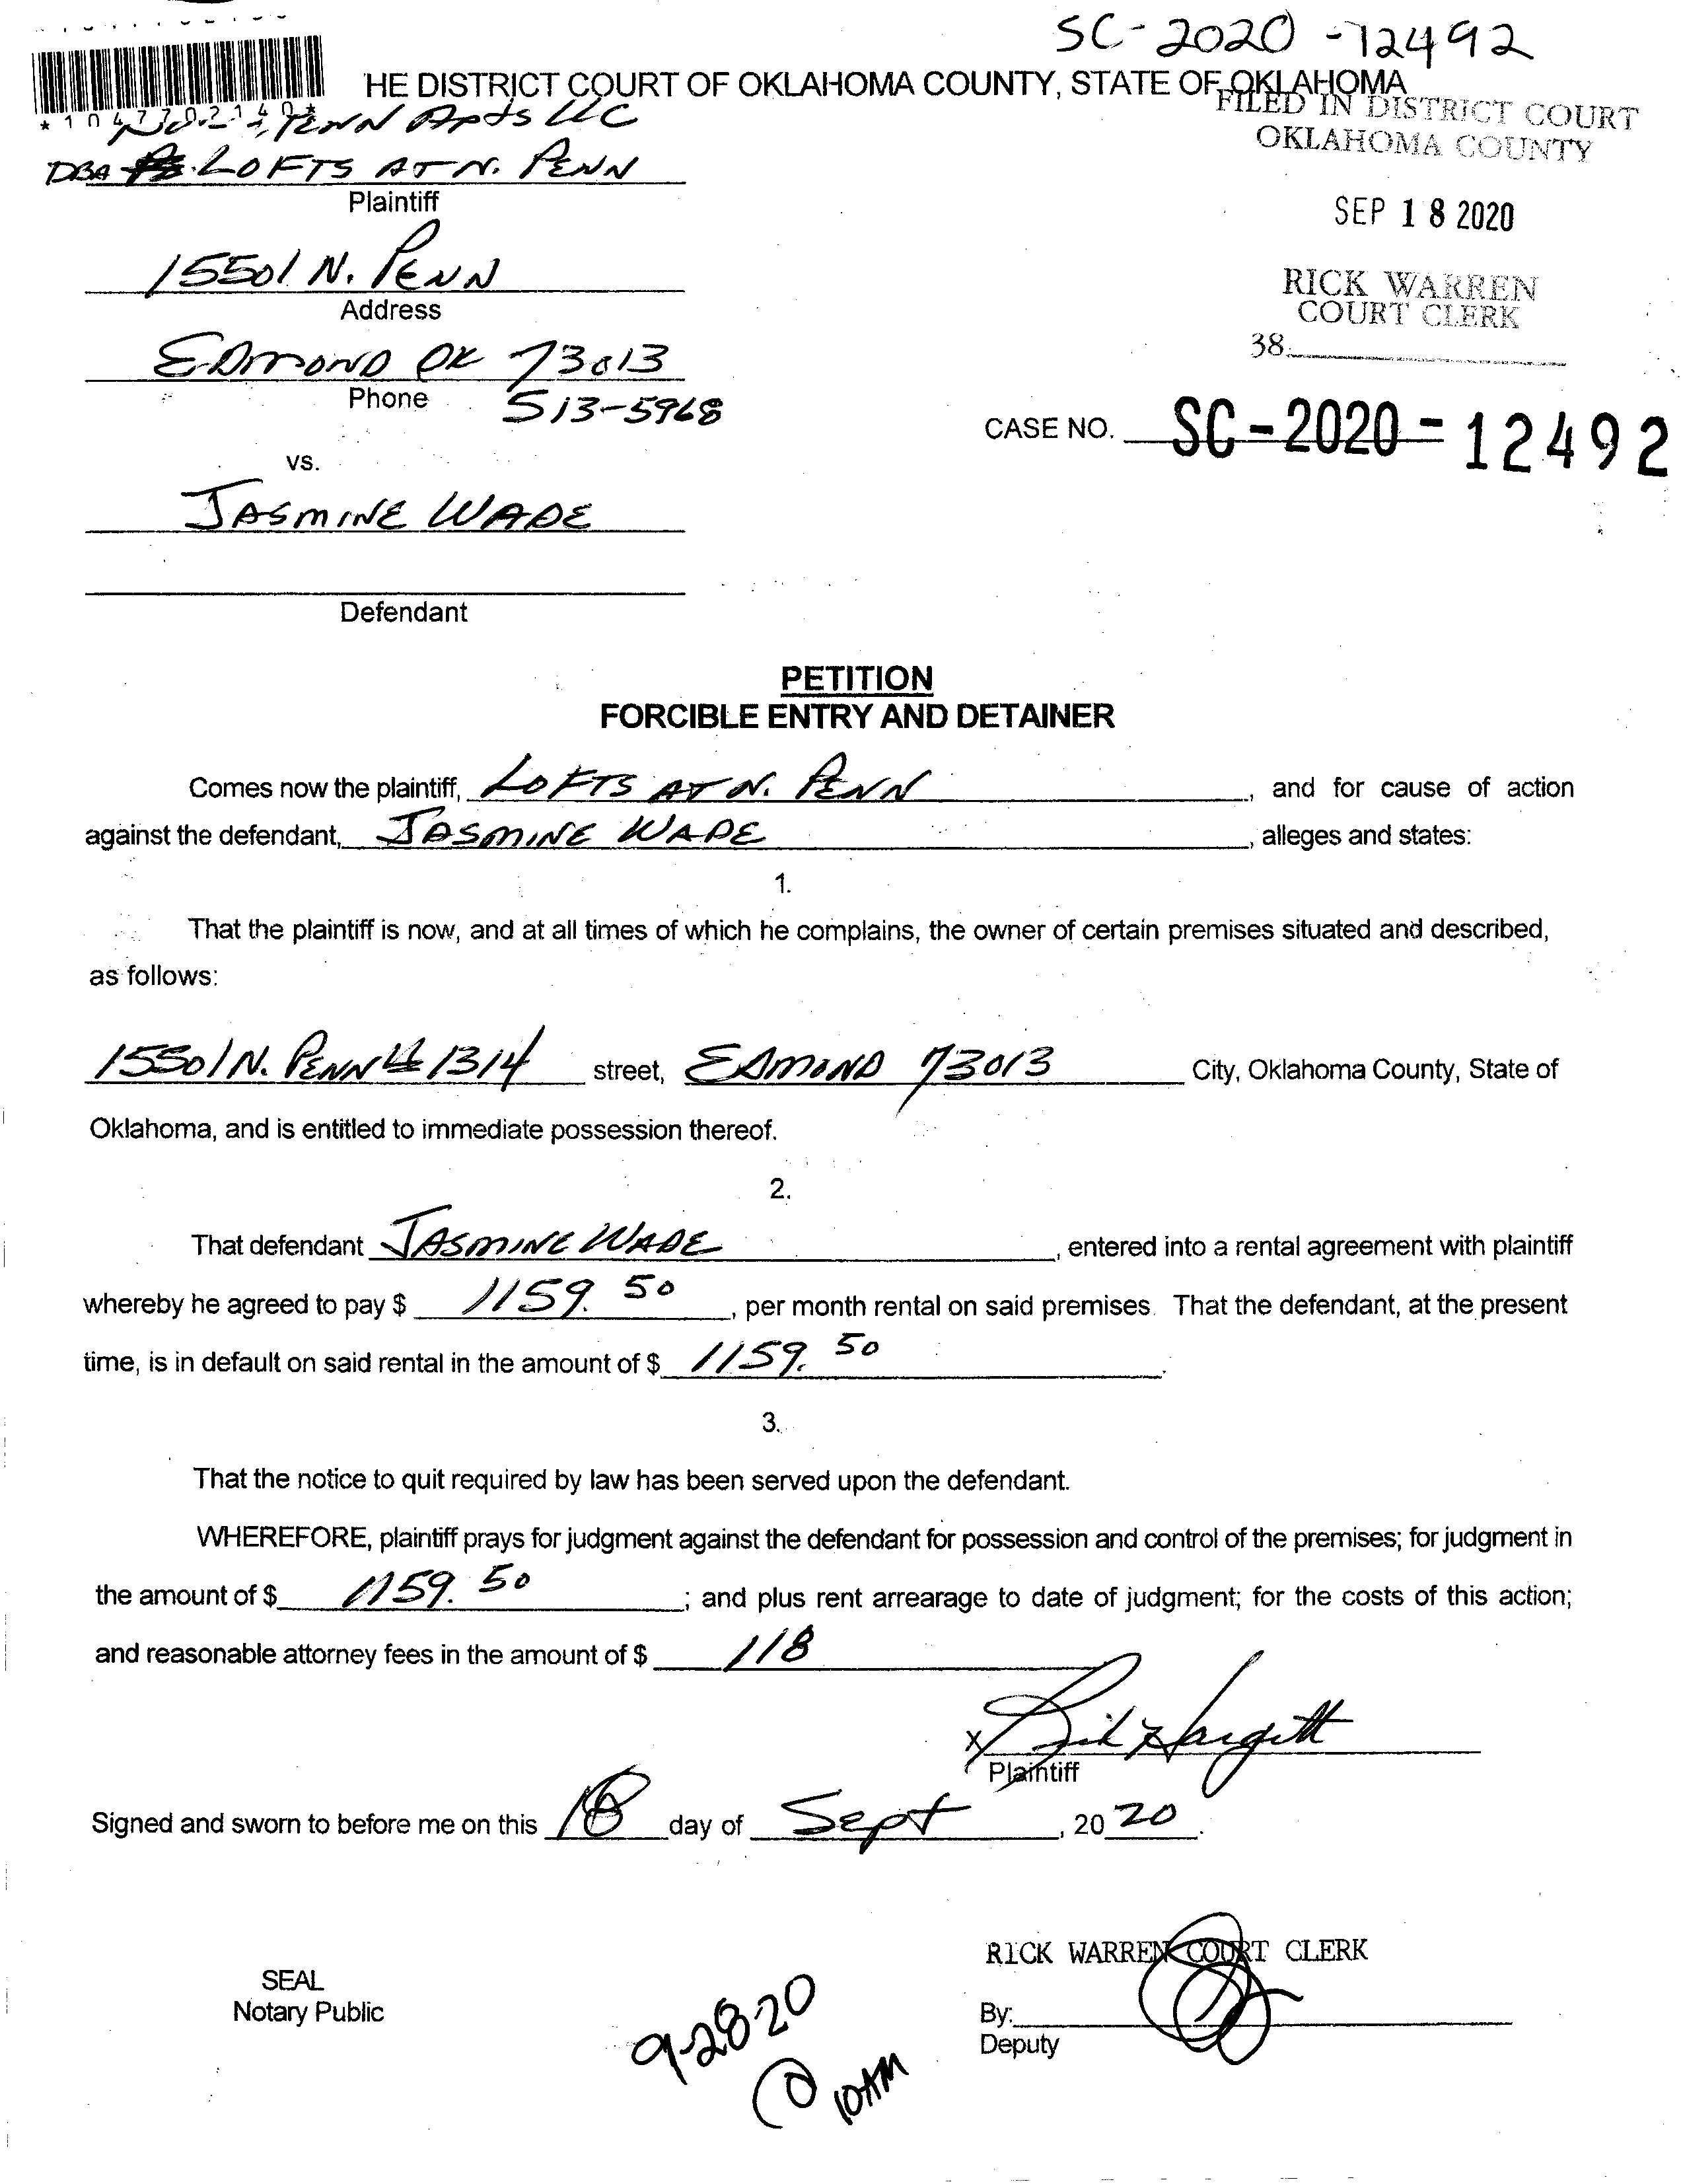 SC-2020-12492
HE DISTRICT COURT OF OKLAHOMA COUNTY, STATE OF OKLAHOMA
*1047702140*
PENN Apts LLC
FILED IN DISTRICT COURT
OKLAHOMA COUNTY
DBA LOFTS AT N. PENN
Plaintiff
SEP 18 2020
15501 N. PENN
Address
RICK WARREN
COURT CLERK
38
EDMOND OK 73013
Phone 513-5968
CASE NO. SC-2020-12492
vs.
JASMINE WADE
Defendant
PETITION
FORCIBLE ENTRY AND DETAINER
Comes now the plaintiff, LOFTS AT N. PENN, and for cause of action
against the defendant, JASMINE WADE, alleges and states:
1.
That the plaintiff is now, and at all times of which he complains, the owner of certain premises situated and described,
as follows:
15501 N. PENN # 1314 street, EDMOND 73013 City, Oklahoma County, State of
Oklahoma, and is entitled to immediate possession thereof.
2.
That defendant JASMINE WADE, entered into a rental agreement with plaintiff
whereby he agreed to pay $ 1159.50, per month rental on said premises. That the defendant, at the present
time, is in default on said rental in the amount of $ 1159.50.
3.
That the notice to quit required by law has been served upon the defendant.
WHEREFORE, plaintiff prays for judgment against the defendant for possession and control of the premises; for judgment in
the amount of $ 1159.50; and plus rent arrearage to date of judgment; for the costs of this action;
and reasonable attorney fees in the amount of $ 118
X
Plaintiff
Signed and sworn to before me on this 18 day of Sept, 2020.
RICK WARREN COURT CLERK
SEAL
Notary Public
By:
Deputy
9-28-20
@ 10AM